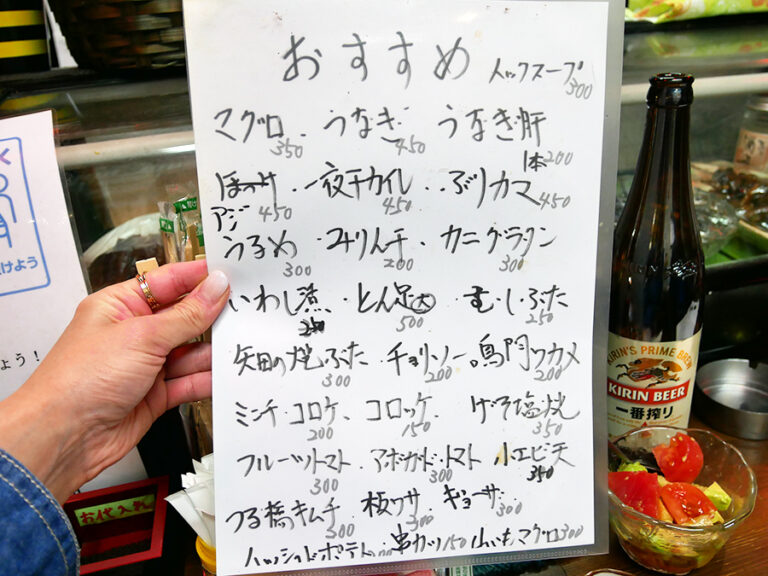 おすすめ
スープ 300
マグロ 350 ・ うなぎ 450 うなぎ肝 1本200
ほっけ 450 ・ 一夜干カイレ 450 ・・ ぶりカマ 450
アジ
うるめ 300 ・ みりん干 200 ・ カニグラタン 300
いわし煮 ・ とん足大 500 ・ むしぶた 250
矢田の焼ぶた 300 ・ チョリソー 200 鳴門ワカメ 200
ミンチ・コロケ 200 コロッケ 150 げそ塩焼 350
フルーツトマト 300 アボカド・トマト 300 小エビ天 350
つる橋キムチ 300 板ワサ 300 ギョーザ 300
ハッシュドポテト 串カツ150 山いもマグロ300
けよう
ょう!
お代入れ
KIRIN'S PRIME BREW
KIRIN BEER
一番搾り